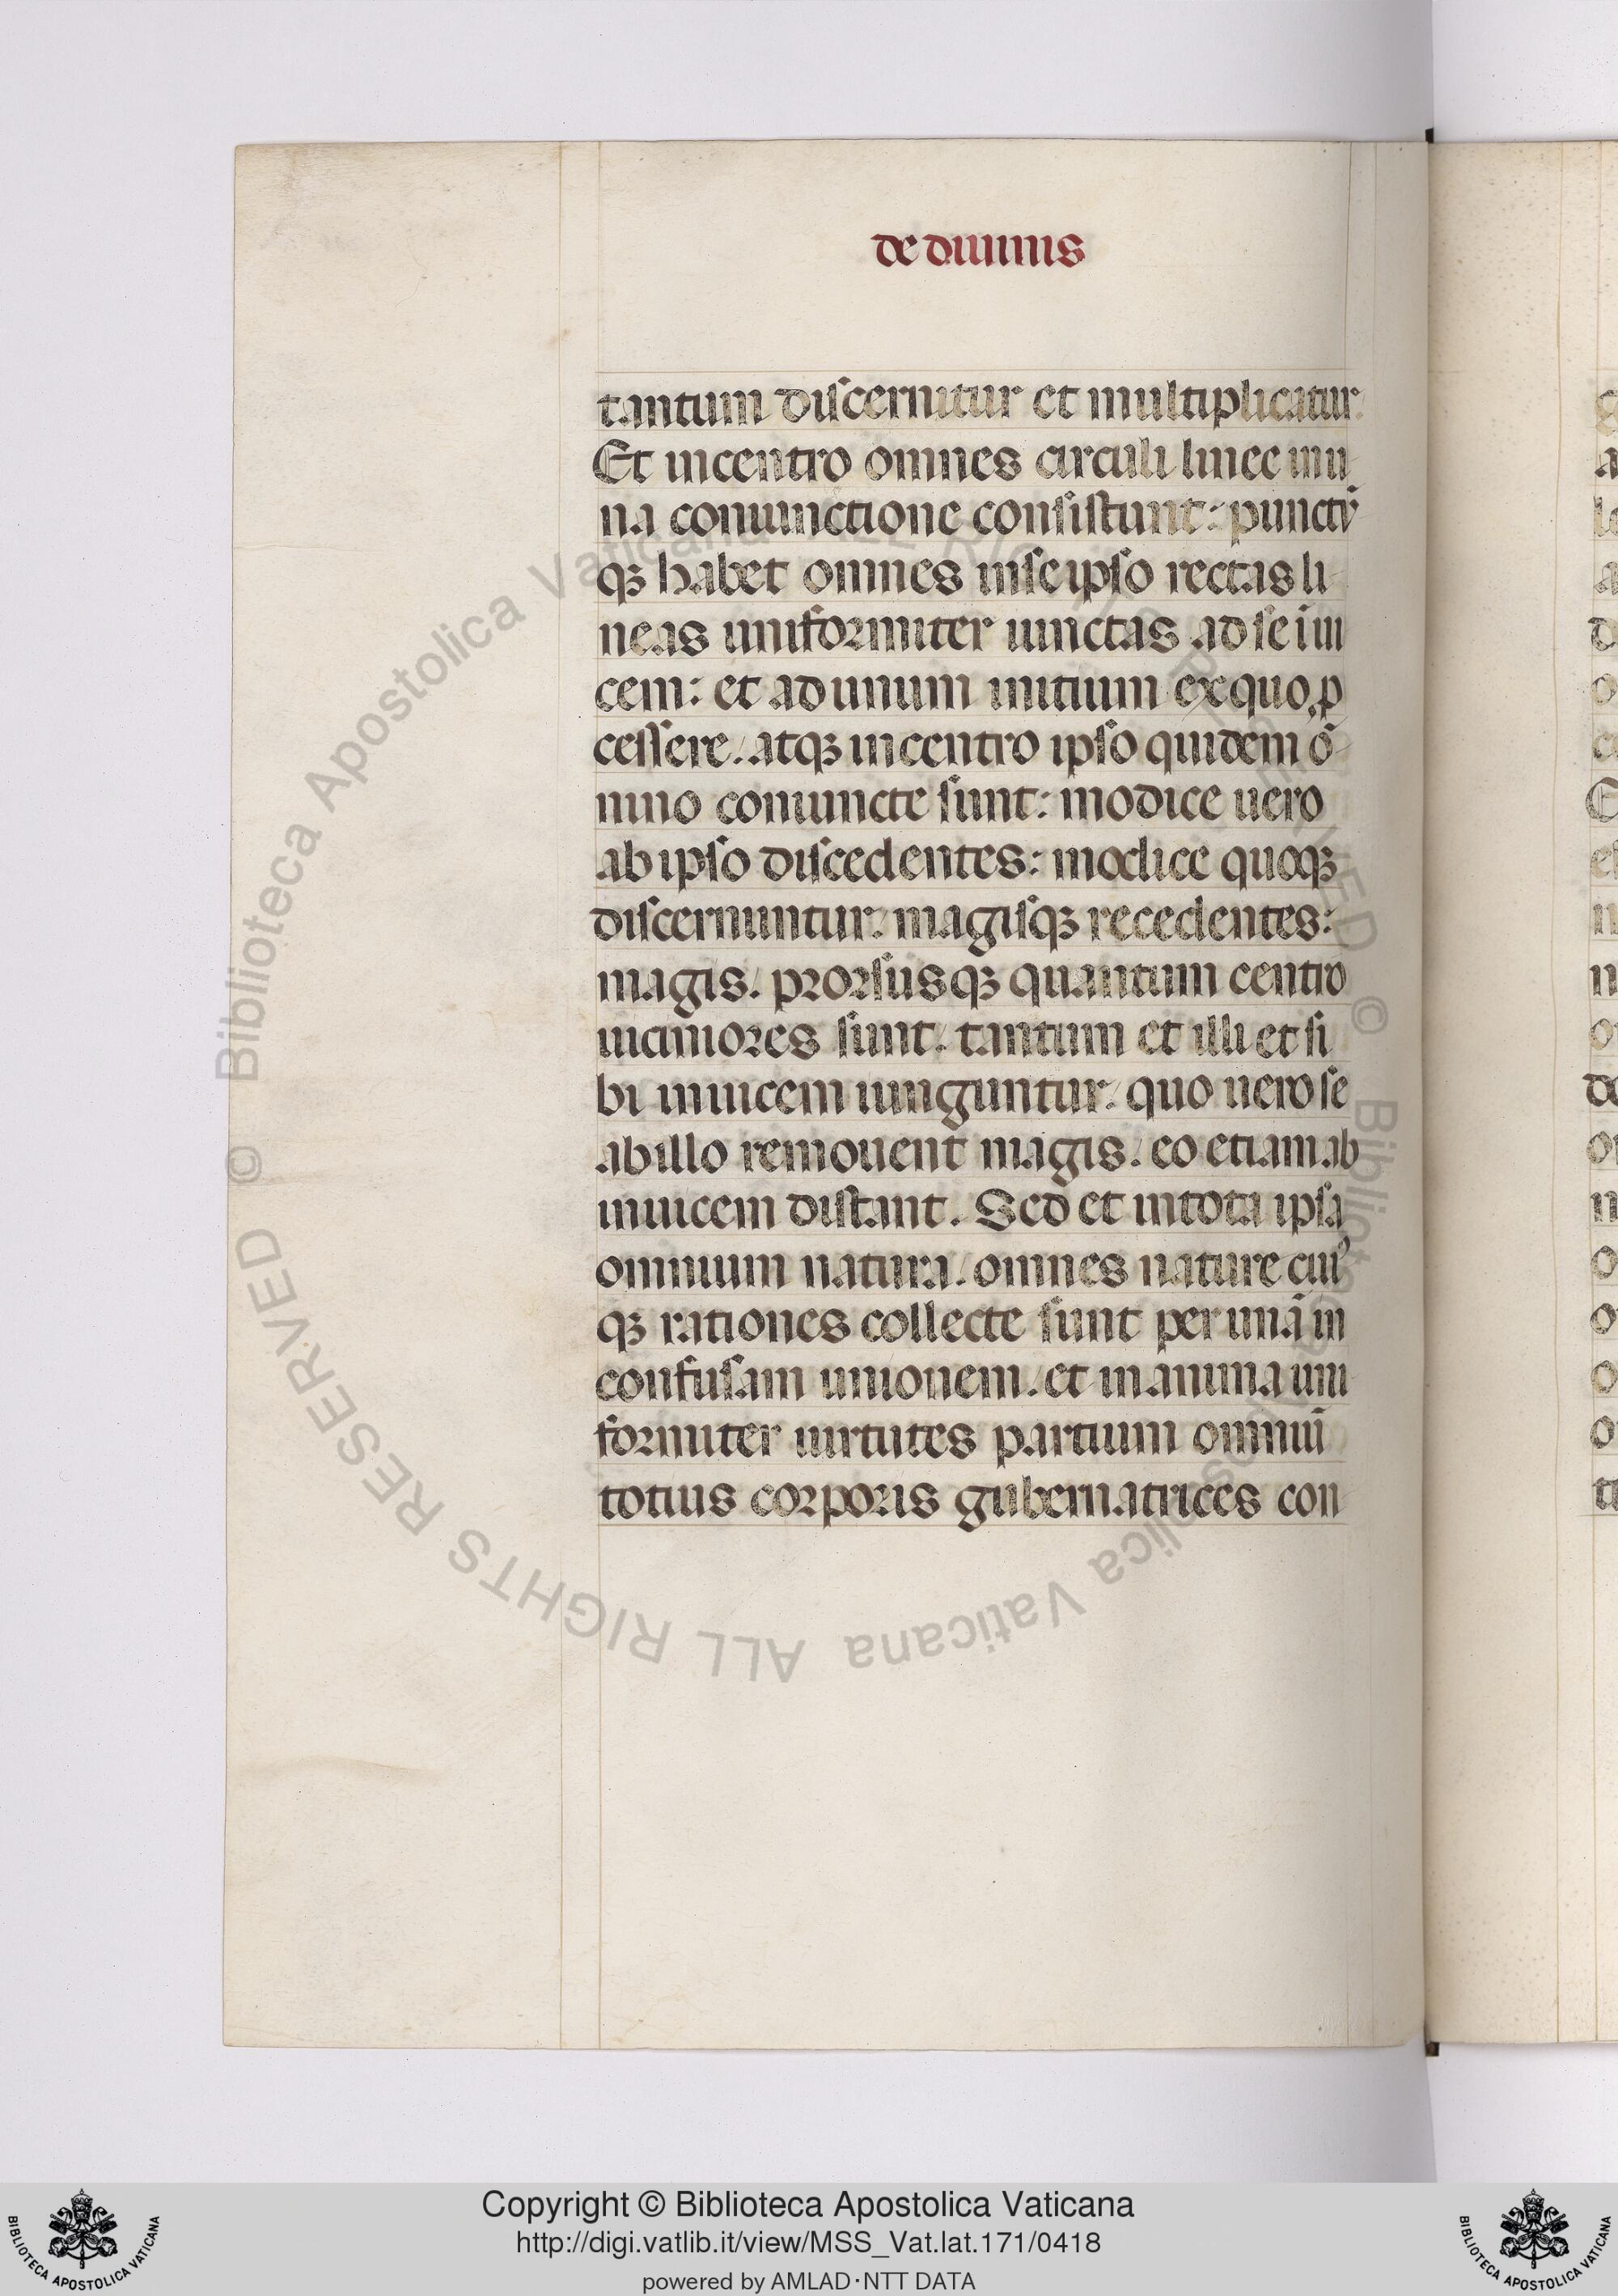 de diuinis
tantum discernitur et multiplicatur.
Et incentro omnes circuli linee inu
na coniunctione consistunt: punctū
qȝ habet omnes inseipso rectas li
neas uniformiter iunctas ad se īui
cem: et ad unum initium exquo ꝓ
cessere. atqȝ incentro ipso quidem ō
nino coniuncte sunt: modice uero
ab ipso discedentes: modice quoqȝ
discernuntur. magisqȝ recedentes:
magis. prorsusqȝ quantum centro
uiciniores sunt. tantum et illi et si
bi inuicem iunguntur. quo uero se
ab illo remouent magis. eo etiam ab
inuicem distant. Sed et intota ipsa
omnium natura. omnes nature cuiꝰ
qȝ rationes collecte sunt per unā in
confusam unionem. et in anima uni
formiter uirtutes partium omniū
totius corporis gubernatrices con
Copyright © Biblioteca Apostolica Vaticana
http://digi.vatlib.it/view/MSS_Vat.lat.171/0418
powered by AMLAD·NTT DATA
BIBLIOTECA APOSTOLICA VATICANA
BIBLIOTECA APOSTOLICA VATICANA
© Biblioteca Apostolica Vaticana ALL RIGHTS RESERVED © Biblioteca Apostolica Vaticana ALL RIGHTS RESERVED